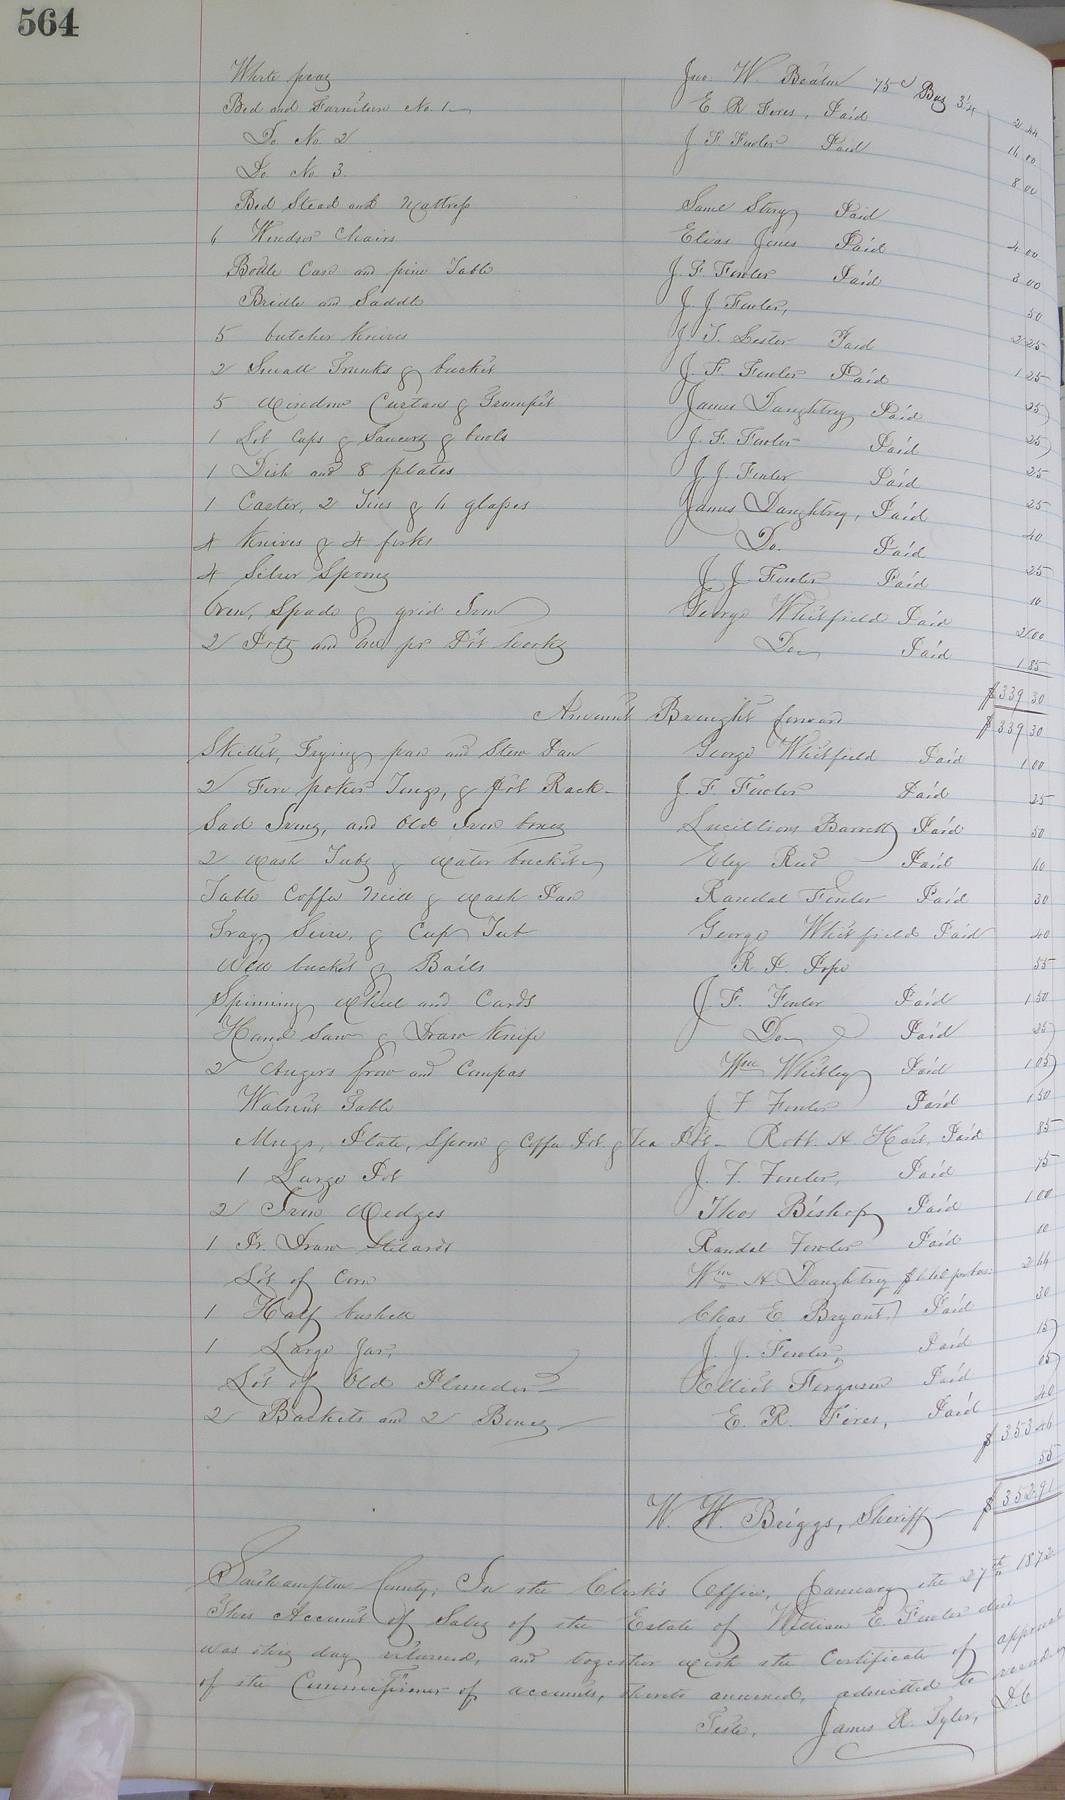 564
White peas Jno. W. Beaton 75c Bus 3¼ 2 44
Bed and Furniture No. 1 E R Fores, Paid 16 00
Do No 2 J F Fowler Paid 8 00
Do No 3
Bed Stead and Mattress Saml Story Paid 4 00
6 Windsor Chairs Elias Jones Paid 3 00
Bottle Case and pine Table J. F Fowler Paid 50
Bridle and Saddle J. J. Fowler, 2 25
5 butcher Knives J T. Lester Paid 1 25
2 Small Trunks & bucket J. F Fowler Paid 25
5 Window Curtans & Trumpet James Daughtrey Paid 25
1 Lot Cups & Saucers & bowls J. F. Fowler Paid 25
1 Dish and 8 plates J J Fowler Paid 25
1 Caster, 2 Tins & 4 glasses James Daughtrey, Paid 40
4 Knives & 4 forks Do. Paid 25
4 Silver Spoons J. J Fowler Paid 10
Oven, Spade & grid Iron George Whitfield Paid 2 00
2 Pots and one pr Pot hooks Do Paid 1 85
$339 30
Amount Brought forward $339 30
Skillet, Frying pan and Stew Pan George Whitfield Paid 1 00
2 Fire pokers Tongs, & Pot Rack J. F. Fowler Paid 25
Sad Irons, and Old Iron Barrett Paid 50
2 Wash Tubs & Water bucket Eley Reid Paid 40
Table Coffee Mill & Wash Pan Randal Fowler Paid 30
Tray, Seive, & Cup Tub George Whitfield Paid 40
Well bucket & Bails R. P. Pope 55
Spinning Wheel and Cards J. F. Fowler Paid 1 50
Hand Saw & Draw Knife Do Paid 25
2 Augers frow and Compas Wm Whitley Paid 1 05
Walnut Table J. F Fowler Paid 1 50
Mugs, Plate, Spoon & Coffee Pot & Tea Pot Robt. H Hart. Paid 85
1 Large Pot J. F. Fowler, Paid 75
2 Iron Wedges Thos Bishop Paid 1 00
1 Pr. Draw Stilards Randal Fowler Paid 10
Lot of Corn Wm H Daughtrey 2 44
1 Half bushell Chas E Bryant. Paid 30
1 Large Jar, J. J. Fowler, Paid 15
Lot of Old Plunder Elliot Ferguson Paid 05
2 Baskets and 2 E. R. Fores, Paid 40
$353 46
55
$352 91
W. W. Briggs, Sheriff
Southampton County; In the Clerk's Office, January the 27th 1872
This Account of Sales of the Estate of William E. Fowler decd
was this day returned, and together with the Certificate of approval
of the Commissioner of accounts, thereto annexed, admitted to record
Teste, James R. Tyler, D.C